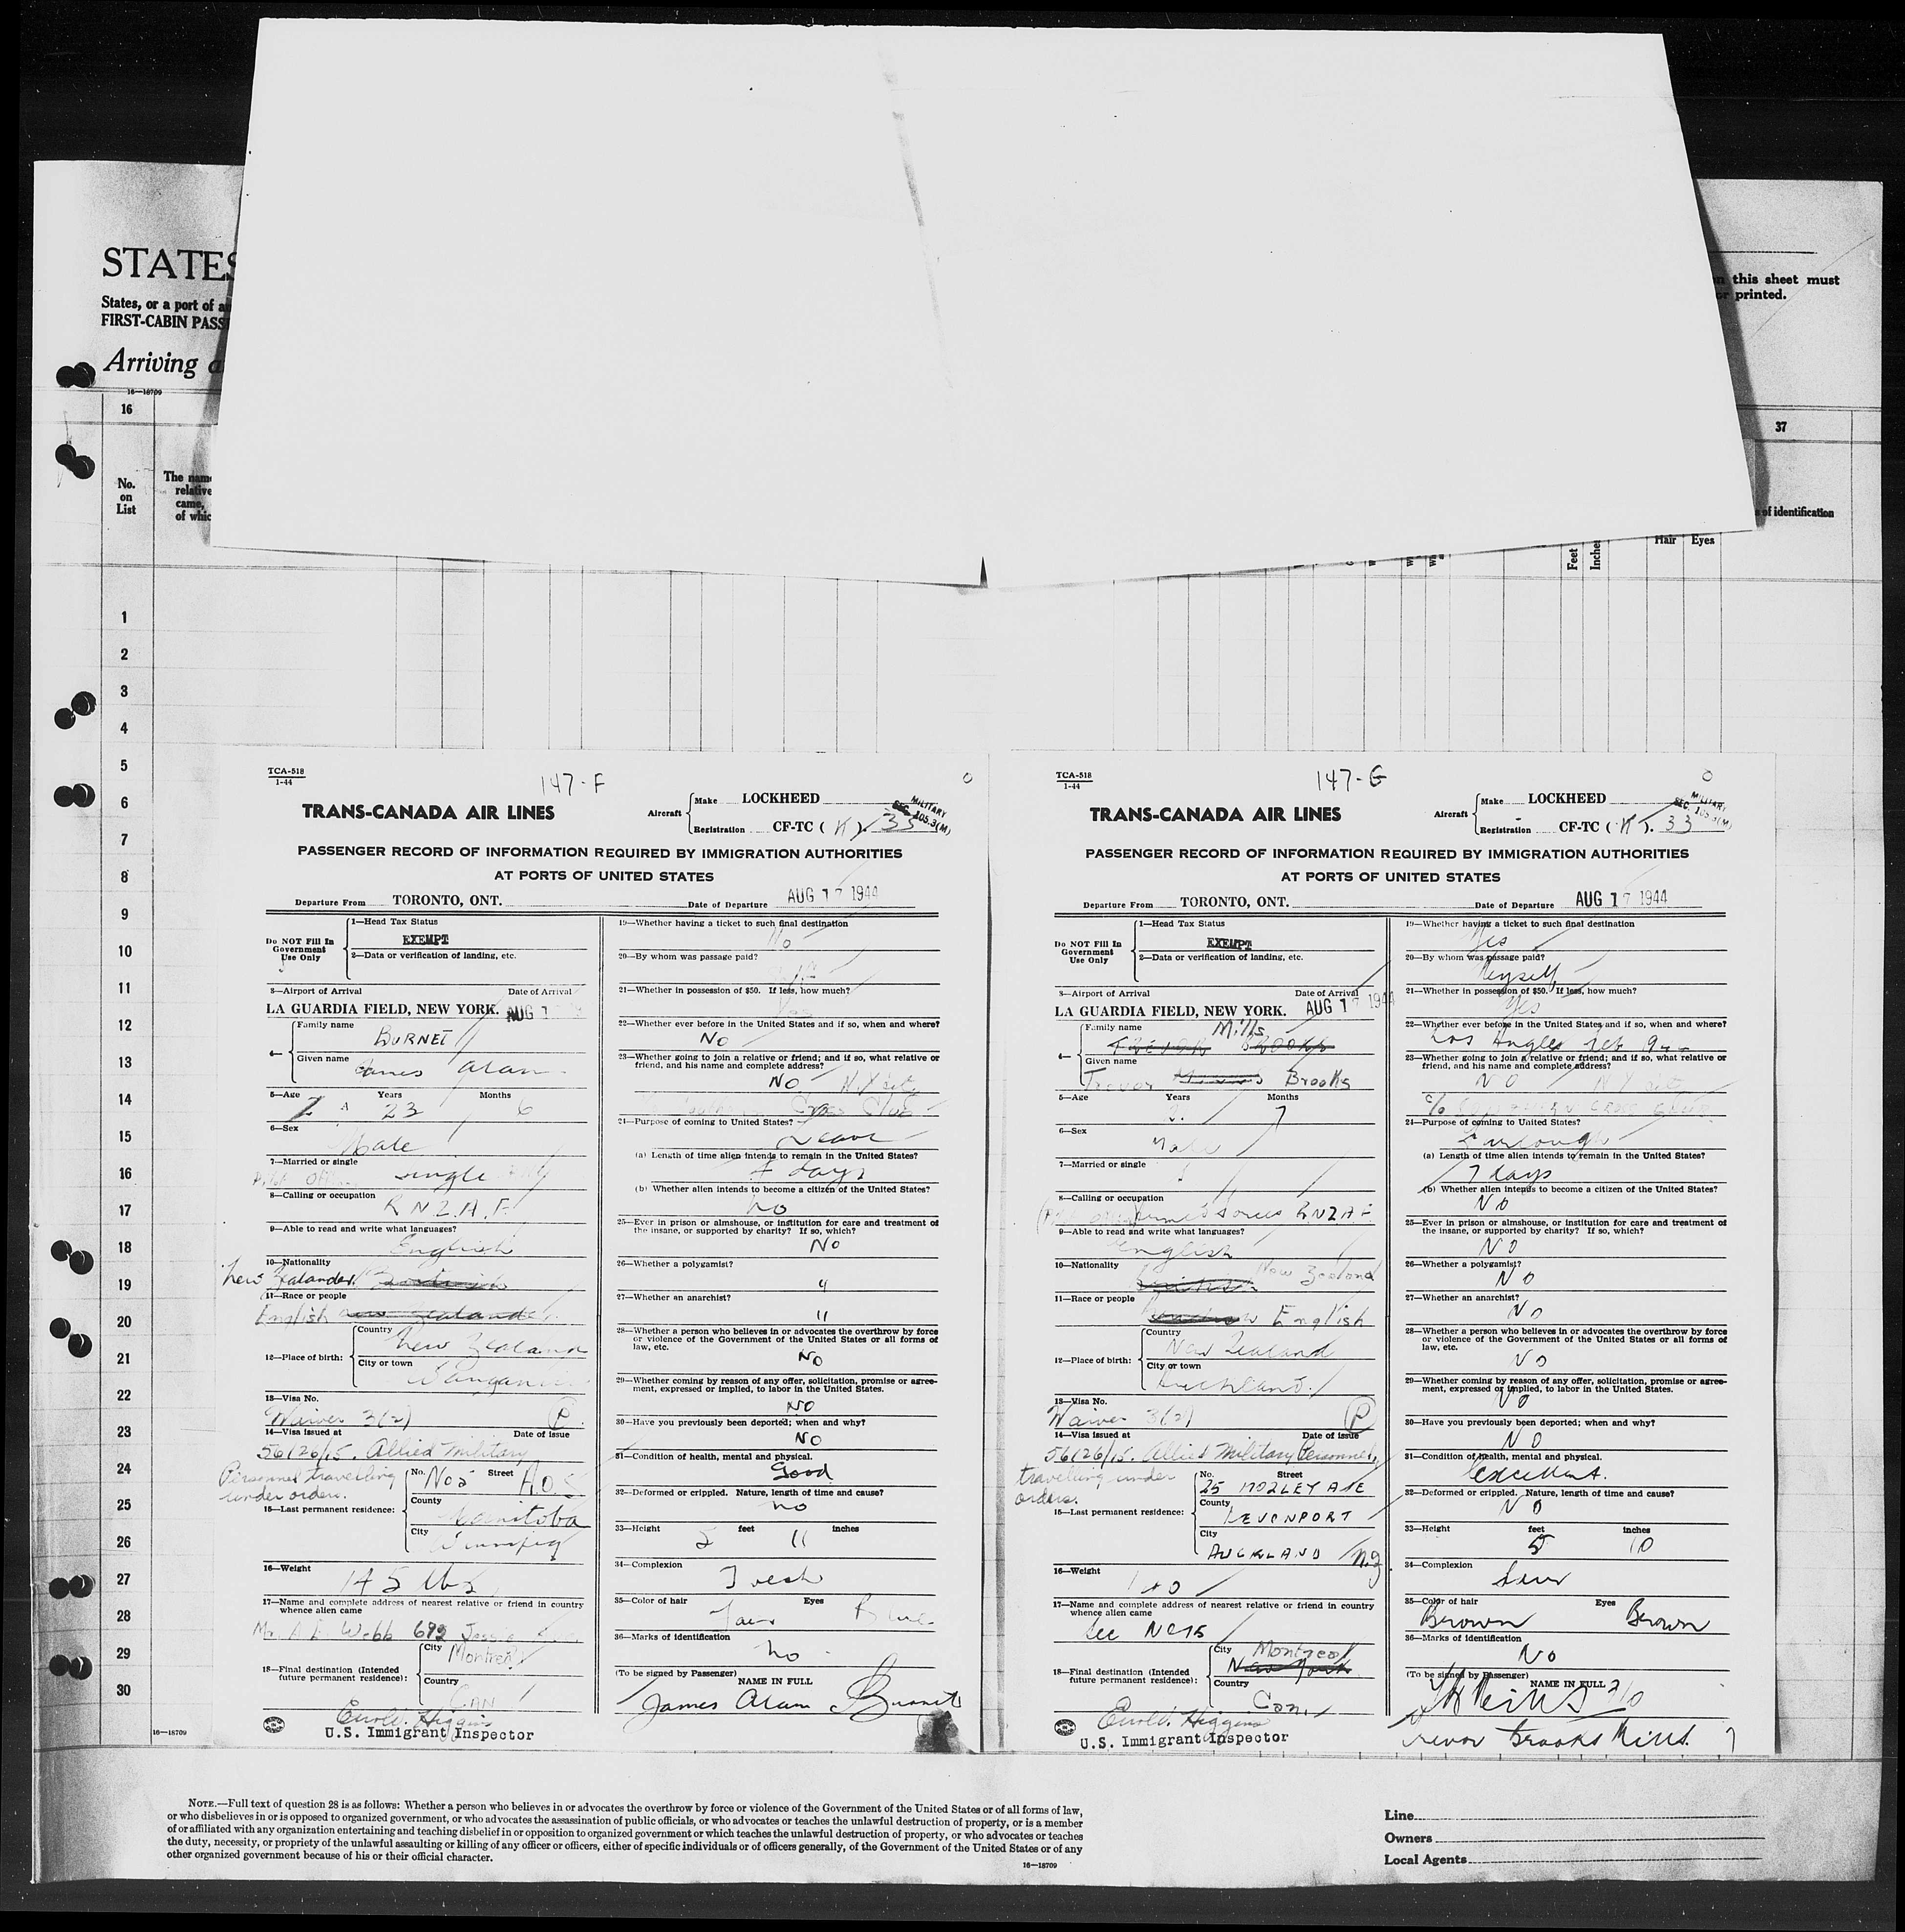 STATES
States, or a port of
FIRST-CABIN PASS
Arriving
16—18709
16
No.
on
List
The name
relative
came,
of which
this sheet must
or printed.
37
of identification
Feet
Inches
Hair
Eyes
1
2
3
4
5
6
7
8
9
10
11
12
13
14
15
16
17
18
19
20
21
22
23
24
25
26
27
28
29
30
16—18709
TCA-518
1-44
147-F
TRANS-CANADA AIR LINES
Aircraft
Make LOCKHEED
Registration CF-TC (K). 33
MILITARY
SEC. 105.3(M)
PASSENGER RECORD OF INFORMATION REQUIRED BY IMMIGRATION AUTHORITIES
AT PORTS OF UNITED STATES
Departure From TORONTO, ONT. Date of Departure AUG 17 1944
Do NOT Fill In
Government
Use Only
1—Head Tax Status
EXEMPT
2—Data or verification of landing, etc.
3—Airport of Arrival Date of Arrival
LA GUARDIA FIELD, NEW YORK. AUG 1
4—
Family name
BURNET
Given name
James Aram
5—Age Years Months
23 6
6—Sex
Male
7—Married or single
single
8—Calling or occupation
R N Z. A. F.
9—Able to read and write what languages?
English
10—Nationality
New Zealander
11—Race or people
English New Zealander
12—Place of birth:
Country
New Zealand
City or town
13—Visa No.
Waiver 3(2) P.
14—Visa issued at Date of issue
56/26/15. Allied Military
Personnel travelling
under orders.
15—Last permanent residence:
No. No 5 Street A.O.S
County
Manitoba
City
Winnipeg
16—Weight
145 lbs
17—Name and complete address of nearest relative or friend in country
whence alien came
Webb 692
18—Final destination (Intended
future permanent residence):
City
Montreal
Country
CAN
U.S. Immigrant Inspector
19—Whether having a ticket to such final destination
No
20—By whom was passage paid?
21—Whether in possession of $50. If less, how much?
22—Whether ever before in the United States and if so, when and where?
No
23—Whether going to join a relative or friend; and if so, what relative or
friend, and his name and complete address?
NO N.Y. City
24—Purpose of coming to United States?
Leave
(a) Length of time alien intends to remain in the United States?
7 days
(b) Whether alien intends to become a citizen of the United States?
No
25—Ever in prison or almshouse, or institution for care and treatment of
the insane, or supported by charity? If so, which?
NO
26—Whether a polygamist?
"
27—Whether an anarchist?
"
28—Whether a person who believes in or advocates the overthrow by force
or violence of the Government of the United States or all forms of
law, etc.
NO
29—Whether coming by reason of any offer, solicitation, promise or agree-
ment, expressed or implied, to labor in the United States.
NO
30—Have you previously been deported; when and why?
NO
31—Condition of health, mental and physical.
Good
32—Deformed or crippled. Nature, length of time and cause?
no
33—Height feet inches
5 11
34—Complexion
Fresh
35—Color of hair Eyes
Fair Blue
36—Marks of identification
No
(To be signed by Passenger)
NAME IN FULL
James Aram Burnet
TCA-518
1-44
147-G
TRANS-CANADA AIR LINES
Aircraft
Make LOCKHEED
Registration CF-TC (K). 33
MILITARY
SEC. 105.3(M)
PASSENGER RECORD OF INFORMATION REQUIRED BY IMMIGRATION AUTHORITIES
AT PORTS OF UNITED STATES
Departure From TORONTO, ONT. Date of Departure AUG 17 1944
Do NOT Fill In
Government
Use Only
1—Head Tax Status
EXEMPT
2—Data or verification of landing, etc.
3—Airport of Arrival Date of Arrival
LA GUARDIA FIELD, NEW YORK. AUG 17 1944
4—
Family name
Mills
TREVOR BROOKS
Given name
Trevor Brooks
5—Age Years Months
7
6—Sex
Male
7—Married or single
8—Calling or occupation
RNZAF
9—Able to read and write what languages?
English
10—Nationality
New Zealand
11—Race or people
English
12—Place of birth:
Country
New Zealand
City or town
Auckland.
13—Visa No.
Waiver 3(2) P
14—Visa issued at Date of issue
56/26/15. Allied Military Personnel,
travelling under
orders.
15—Last permanent residence:
No. Street
25 MOZLEY AVE
County
DEVONPORT
City
AUCKLAND N.Z
16—Weight
17—Name and complete address of nearest relative or friend in country
whence alien came
See No 15
18—Final destination (Intended
future permanent residence):
City
Montreal
New York
Country
Can.
U.S. Immigrant Inspector
19—Whether having a ticket to such final destination
Yes
20—By whom was passage paid?
Myself
21—Whether in possession of $50. If less, how much?
Yes
22—Whether ever before in the United States and if so, when and where?
Los Angles
23—Whether going to join a relative or friend; and if so, what relative or
friend, and his name and complete address?
NO N.Y. City
24—Purpose of coming to United States?
Furlough
(a) Length of time alien intends to remain in the United States?
7 days
(b) Whether alien intends to become a citizen of the United States?
NO
25—Ever in prison or almshouse, or institution for care and treatment of
the insane, or supported by charity? If so, which?
NO
26—Whether a polygamist?
NO
27—Whether an anarchist?
NO
28—Whether a person who believes in or advocates the overthrow by force
or violence of the Government of the United States or all forms of
law, etc.
NO
29—Whether coming by reason of any offer, solicitation, promise or agree-
ment, expressed or implied, to labor in the United States.
NO
30—Have you previously been deported; when and why?
NO
31—Condition of health, mental and physical.
Excellent.
32—Deformed or crippled. Nature, length of time and cause?
NO
33—Height feet inches
5 10
34—Complexion
35—Color of hair Eyes
Brown Brown
36—Marks of identification
No
(To be signed by Passenger)
NAME IN FULL
Trevor Brooks Mills.
NOTE.—Full text of question 28 is as follows: Whether a person who believes in or advocates the overthrow by force or violence of the Government of the United States or of all forms of law,
or who disbelieves in or is opposed to organized government, or who advocates the assassination of public officials, or who advocates or teaches the unlawful destruction of property, or is a member
of or affiliated with any organization entertaining and teaching disbelief in or opposition to organized government or which teaches the unlawful destruction of property, or who advocates or teaches
the duty, necessity, or propriety of the unlawful assaulting or killing of any officer or officers, either of specific individuals or of officers generally, of the Government of the United States or of any
other organized government because of his or their official character.
16—18709
Line
Owners
Local Agents